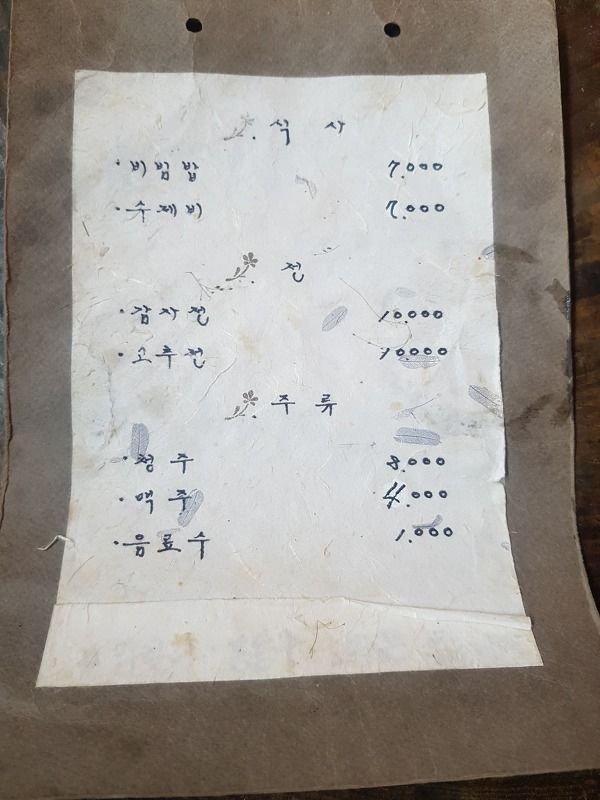 식 사
·비빔밥 7.000
·수제비 7.000
전
·감자전 10.000
·고추전 10.000
주 류
·청 주 8.000
·맥 주 4.000
·음료수 1.000